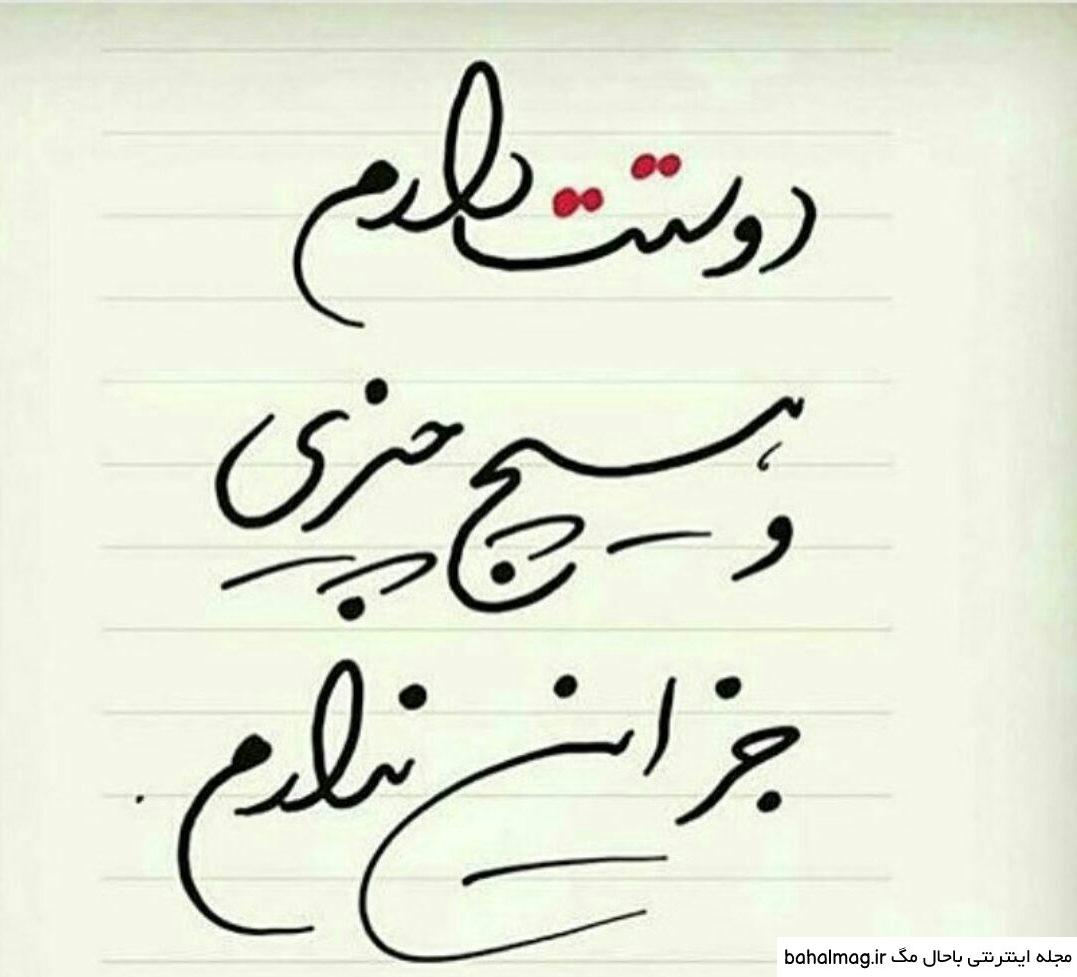 دوستت دارم
و هیچ چیزی
جز این ندارم .
مجله اینترنتی باحال مگ bahalmag.ir